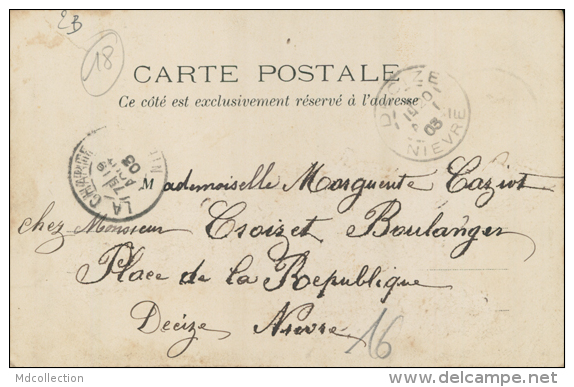 2B
18
CARTE POSTALE
Ce côté est exclusivement réservé à l'adresse
DECIZE
03
NIEVRE
LA CHARITÉ
03
Mademoiselle Marguerite Caziot
chez Monsieur Croizet Boulanger
Place de la République
Decize Nièvre
16
Mdcollection
www.delcampe.net